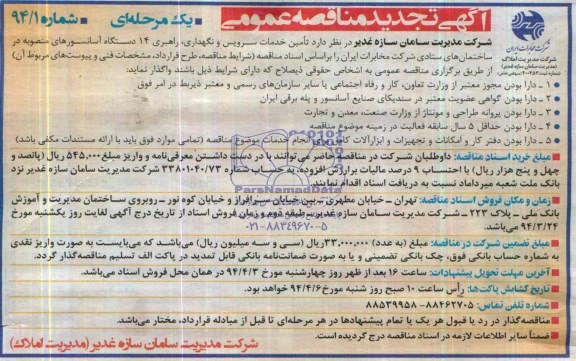 آگهی تجدید مناقصه عمومی
یک مرحله‌ای
شماره ۹۴/۱
شرکت مخابرات ایران
شرکت مدیریت املاک
(مدیریت سامان سازه غدیر)
شرکت مدیریت سامان سازه غدیر در نظر دارد تأمین خدمات سرویس و نگهداری، راهبری ۱۴ دستگاه آسانسورهای منصوبه در
ساختمان‌های ستادی شرکت مخابرات ایران را براساس اسناد مناقصه (شرایط مناقصه، طرح قرارداد، مشخصات فنی و پیوست‌های مربوط آن)
از طریق برگزاری مناقصه عمومی به اشخاص حقوقی ذیصلاح که دارای شرایط ذیل باشند واگذار نماید:
۱ - دارا بودن مجوز معتبر از وزارت تعاون، کار و رفاه اجتماعی یا سایر سازمان‌های رسمی و معتبر ذیربط در امر فوق
۲ - دارا بودن گواهی عضویت معتبر در سندیکای صنایع آسانسور و پله برقی ایران
۳ - دارا بودن پروانه طراحی و مونتاژ از وزارت صنعت، معدن و تجارت
۴ - دارا بودن حداقل ۵ سال سابقه فعالیت در زمینه موضوع مناقصه
۵ - دارا بودن دفتر کار و امکانات و تجهیزات و ابزارآلات کافی برای انجام خدمات موضوع مناقصه (تمامی موارد فوق باید با ارائه مستندات مکفی باشد)
مبلغ خرید اسناد مناقصه: داوطلبان شرکت در مناقصه حاضر می‌توانند با در دست داشتن معرفی‌نامه و واریز مبلغ ۵۴۵,۰۰۰ ریال (پانصد و
چهل و پنج هزار ریال) با احتساب ۹ درصد مالیات برارزش افزوده، به حساب شماره ۳۳۸۰۱۴۰/۷۳ شرکت مدیریت سامان سازه غدیر نزد
بانک ملت شعبه میرداماد نسبت به دریافت اسناد اقدام نمایند.
زمان و مکان فروش اسناد مناقصه: تهران - خیابان مطهری - بین خیابان سرافراز و خیابان کوه نور - روبروی ساختمان مدیریت و آموزش
بانک ملی - پلاک ۲۲۳ - شرکت مدیریت سامان سازه غدیر - طبقه دوم و زمان فروش اسناد از تاریخ درج آگهی لغایت روز یکشنبه مورخ
۹۴/۳/۲۴ می‌باشد.
مبلغ تضمین شرکت در مناقصه: مبلغ (به عدد) ۳۳,۰۰۰,۰۰۰ ریال (سی و سه میلیون ریال) می‌باشد که می‌بایست به صورت واریز نقدی
به شماره حساب بانکی فوق، چک بانکی تضمینی و یا به صورت ضمانت‌نامه بانکی قابل تمدید در پاکت الف تسلیم مناقصه‌گزار گردد.
آخرین مهلت تحویل پیشنهادات: ساعت ۱۶ بعد از ظهر روز چهارشنبه مورخ ۹۴/۴/۳ در همان محل فروش اسناد می‌باشد.
تاریخ گشایش پاکت‌ها: رأس ساعت ۱۰ صبح روز شنبه مورخ ۹۴/۴/۶ خواهد بود.
شماره تلفن تماس: ۸۸۴۶۲۷۰۵ - ۸۸۵۳۹۹۵۸
مناقصه‌گذار در رد یا قبول هر یک یا تمام پیشنهادها در هر مرحله‌ای تا قبل از مبادله قرارداد، مختار می‌باشد.
ضمناً سایر اطلاعات لازمه در اسناد مناقصه درج گردیده است.
شرکت مدیریت سامان سازه غدیر (مدیریت املاک)
ParsNamadData
۰۲۱-۸۸۳۴۹۶۷۰-۵